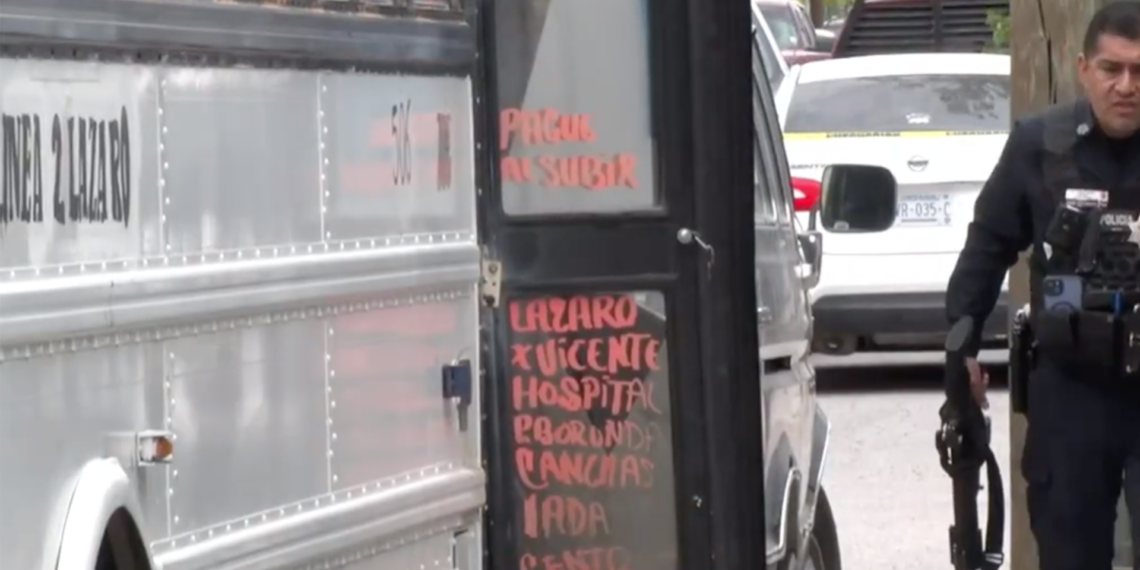 LINEA 2 LAZARO
506
PAGUE
AL SUBIR
LAZARO
X VICENTE
HOSPITAL
P.BORUNDA
CANCHAS
CENTO
POLICIA
R-035-C